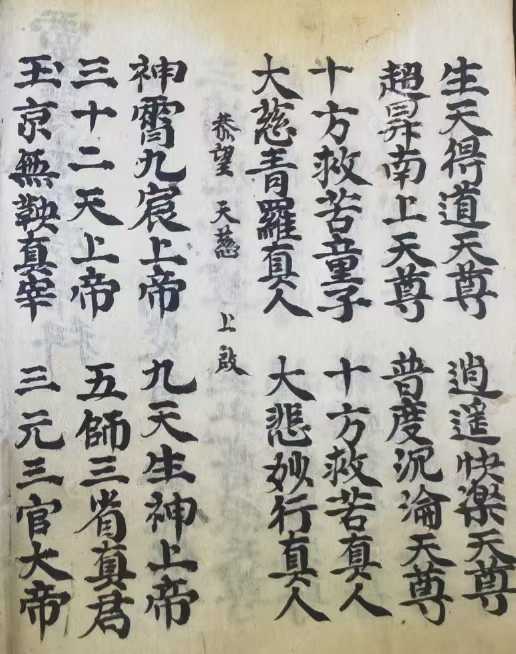 生天得道天尊 逍遥快楽天尊
超昇南上天尊 普度沉淪天尊
十方救苦童子 十方救苦真人
大慈青羅真人 大悲妙行真人
恭望 天慈 上啟
神霄九宸上帝 九天生神上帝
三十二天上帝 五師三省真君
玉京無鞅真宰 三元三官大帝